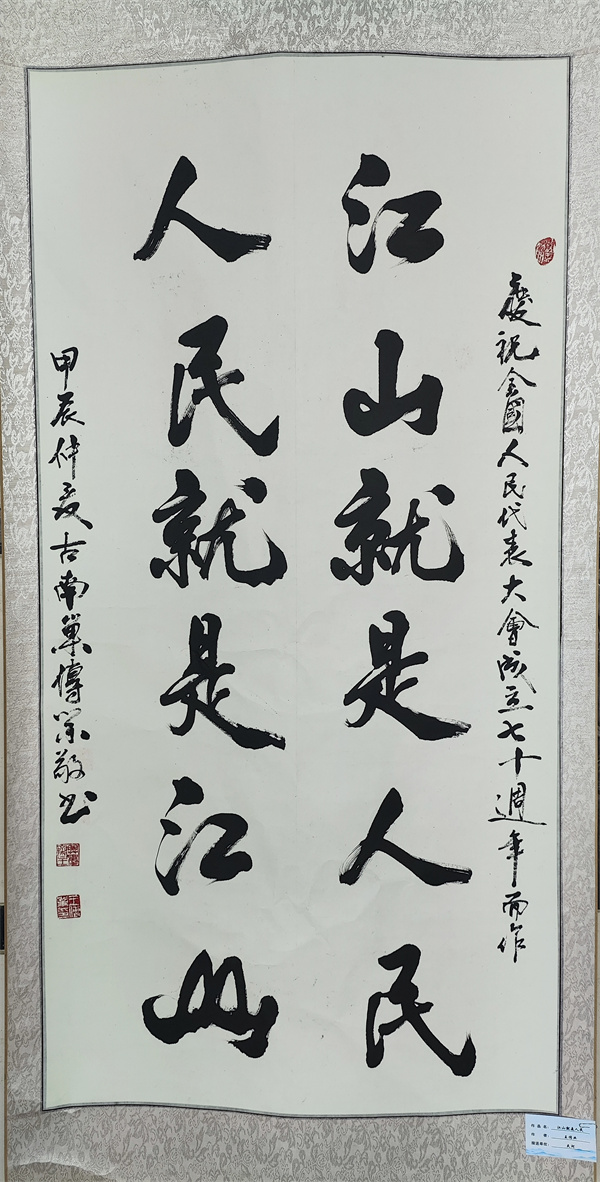 慶祝全國人民代表大會成立七十週年而作
江山就是人民
人民就是江山
甲辰仲夏古南巢傳榮敬书
江山就是人民